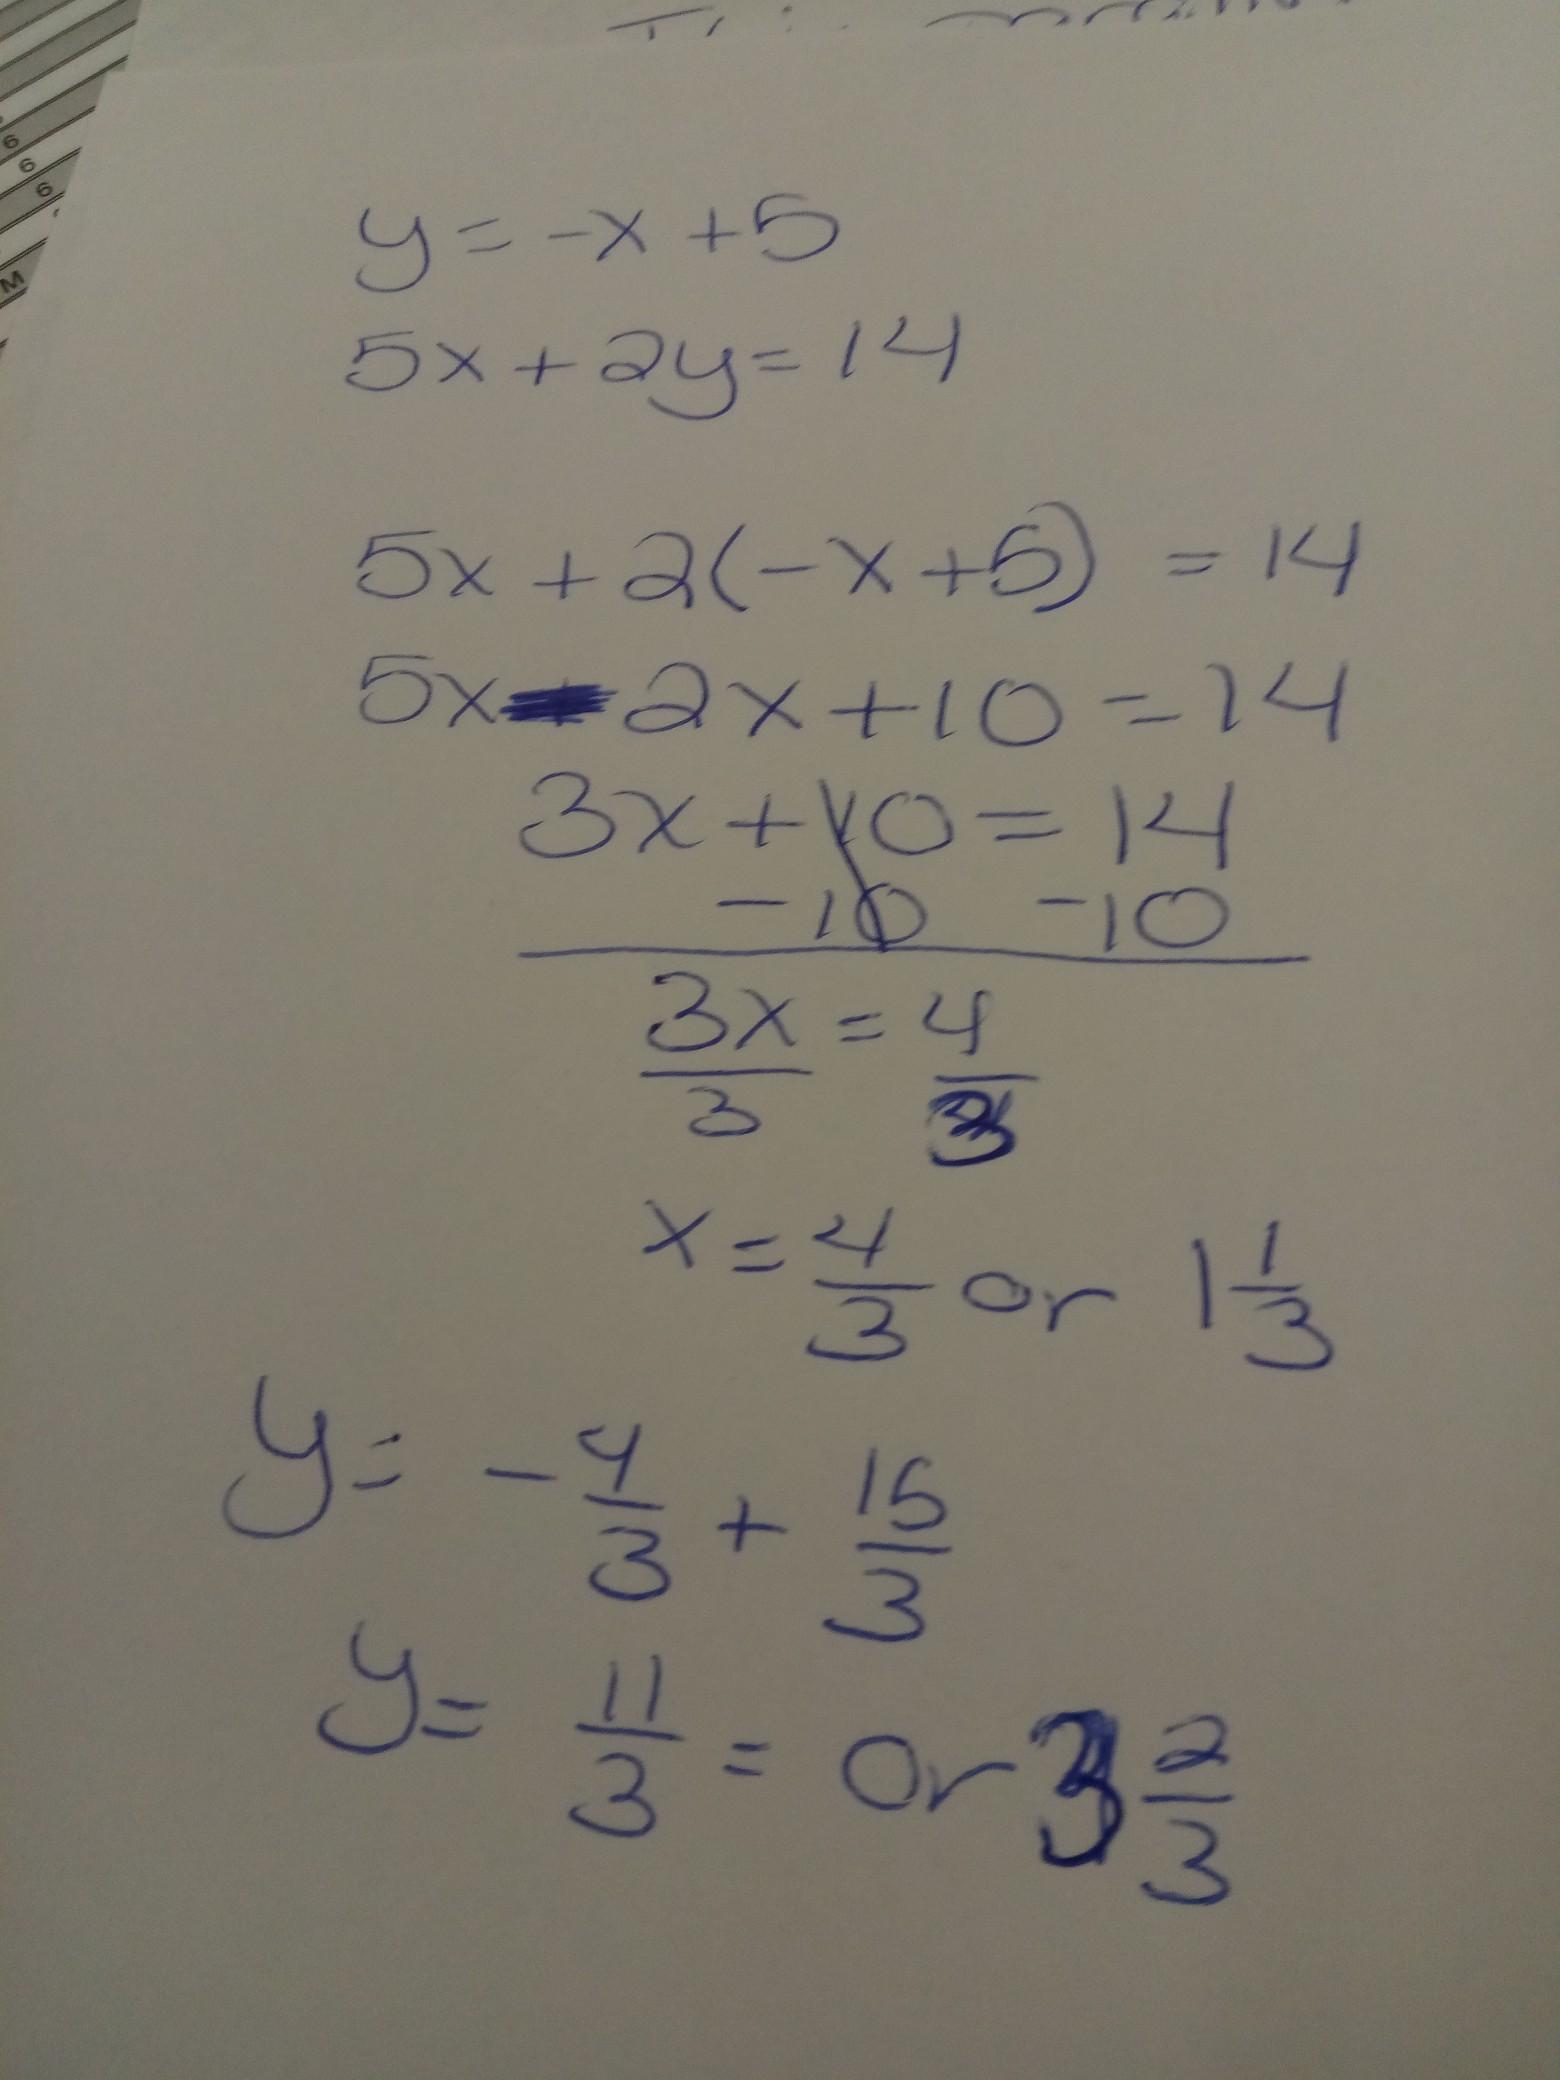 6
6
6
M
y = -x + 5
5x + 2y = 14
5x + 2(-x + 5) = 14
5x - 2x + 10 = 14
3x + 10 = 14
- 10 - 10
3x/3 = 4/3
x = 4/3 or 1 1/3
y = - 4/3 + 15/3
y = 11/3 = or 3 2/3